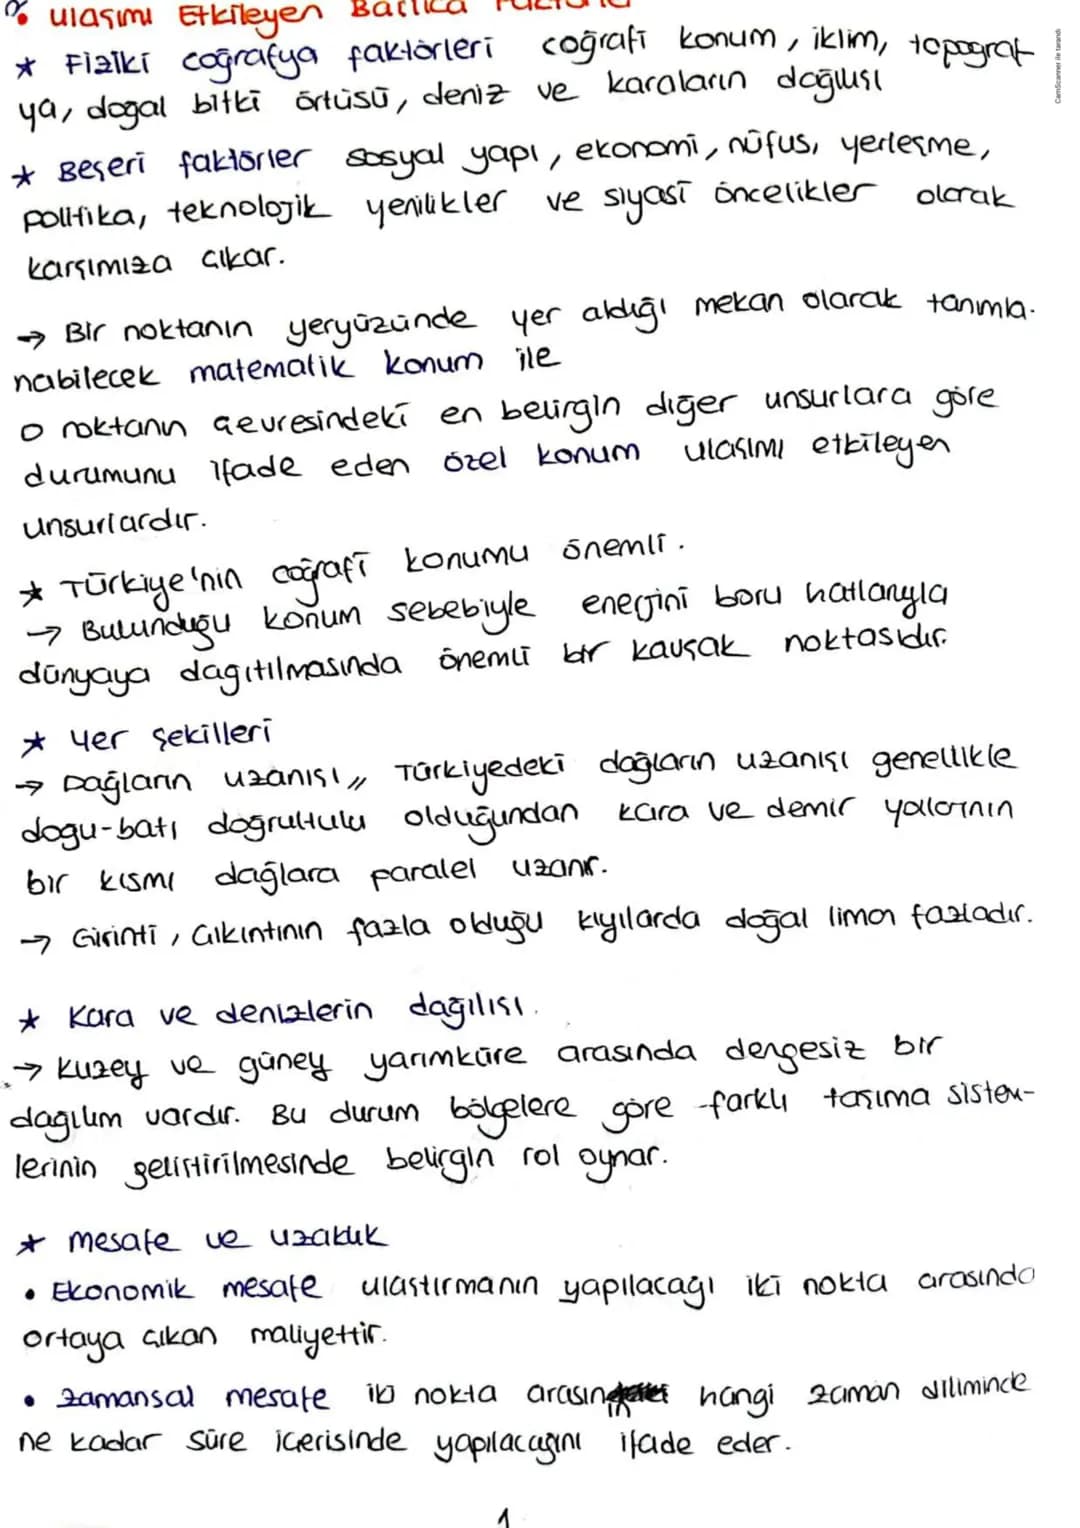 • ulaşımı Etkileyen Başlıca
* Fiziki coğrafya faktörleri coğrafi konum, iklim, topograf
ya, doğal bitki örtüsü, deniz ve karaların dağılışı
* Beşeri faktörler sosyal yapı, ekonomi, nüfus, yerleşme,
politika, teknolojik yenilikler ve siyasi öncelikler olarak
karşımıza çıkar.
→ Bir noktanın yeryüzünde yer aldığı mekan olarak tanımla-
nabilecek matematik konum ile
o noktanın çevresindeki en belirgin diğer unsurlara göre
durumunu ifade eden özel konum ulaşımı etkileyen
unsurlardır.
* Türkiye'nin coğrafi konumu önemli.
→ Bulunduğu konum sebebiyle enerjini boru hatlarıyla
dünyaya dagıtılmasında önemli bir kavşak noktasıdır.
* Yer şekilleri
→ Dağların uzanışı,, Türkiyedeki dağların uzanışı genellikle
dogu-batı doğrultulu olduğundan kara ve demir yollarının
bir kısmı dağlara paralel uzanır.
→ Girinti, çıkıntının fazla olduğu kıyılarda doğal liman fazladır.
* Kara ve denizlerin dağılışı.
→ Kuzey ve güney yarımküre arasında dengesiz bir
dağılım vardır. Bu durum bölgelere göre farklı taşıma sistem-
lerinin geliştirilmesinde belirgin rol oynar.
* mesafe ve uzaklık
• Ekonomik mesafe ulaştırmanın yapılacağı iki nokta arasında
ortaya çıkan maliyettir.
• Zamansal mesafe iki nokta arasın in hangi zaman diliminde
ne kadar süre içerisinde yapılacağını ifade eder.
1
CamScanner ile tarandı